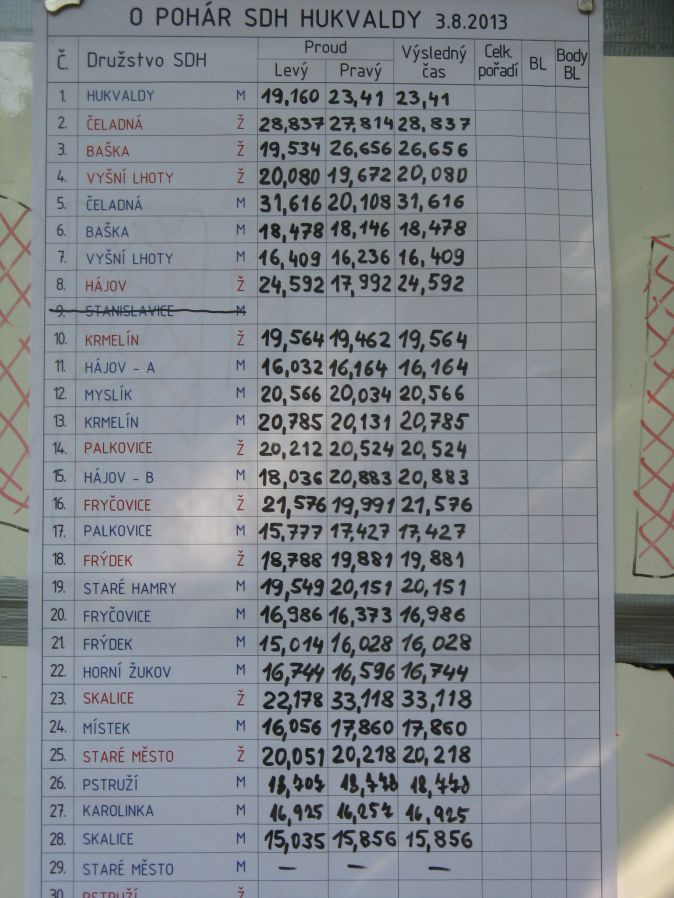 O POHÁR SDH HUKVALDY 3.8.2013
Č. Družstvo SDH Proud Levý Pravý Výsledný čas Celk. pořadí BL Body BL
1. HUKVALDY M 19,160 23,41 23,41
2. ČELADNÁ Ž 28,837 27,814 28,837
3. BAŠKA Ž 19,534 26,656 26,656
4. VYŠNÍ LHOTY Ž 20,080 19,672 20,080
5. ČELADNÁ M 31,616 20,108 31,616
6. BAŠKA M 18,478 18,146 18,478
7. VYŠNÍ LHOTY M 16,409 16,236 16,409
8. HÁJOV Ž 24,592 17,992 24,592
9. STANISLAVICE M
10. KRMELÍN Ž 19,564 19,462 19,564
11. HÁJOV - A M 16,032 16,164 16,164
12. MYSLÍK M 20,566 20,034 20,566
13. KRMELÍN M 20,785 20,131 20,785
14. PALKOVICE Ž 20,212 20,524 20,524
15. HÁJOV - B M 18,036 20,883 20,883
16. FRYČOVICE Ž 21,576 19,991 21,576
17. PALKOVICE M 15,777 17,427 17,427
18. FRÝDEK Ž 18,788 19,881 19,881
19. STARÉ HAMRY M 19,549 20,151 20,151
20. FRYČOVICE M 16,986 16,373 16,986
21. FRÝDEK M 15,014 16,028 16,028
22. HORNÍ ŽUKOV M 16,744 16,596 16,744
23. SKALICE Ž 22,178 33,118 33,118
24. MÍSTEK M 16,056 17,860 17,860
25. STARÉ MĚSTO Ž 20,051 20,218 20,218
26. PSTRUŽÍ M
27. KAROLINKA M 16,925 16,257 16,925
28. SKALICE M 15,035 15,856 15,856
29. STARÉ MĚSTO M – – –
30. PSTRUŽÍ Ž